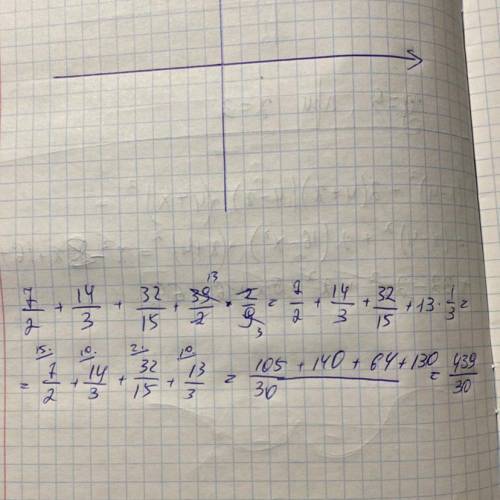 7/2 + 14/3 + 32/15 + 39/2 · 2/9 = 7/2 + 14/3 + 32/15 + 13 · 1/3 =
= 7/2 + 14/3 + 32/15 + 13/3 = (105 + 140 + 64 + 130)/30 = 439/30